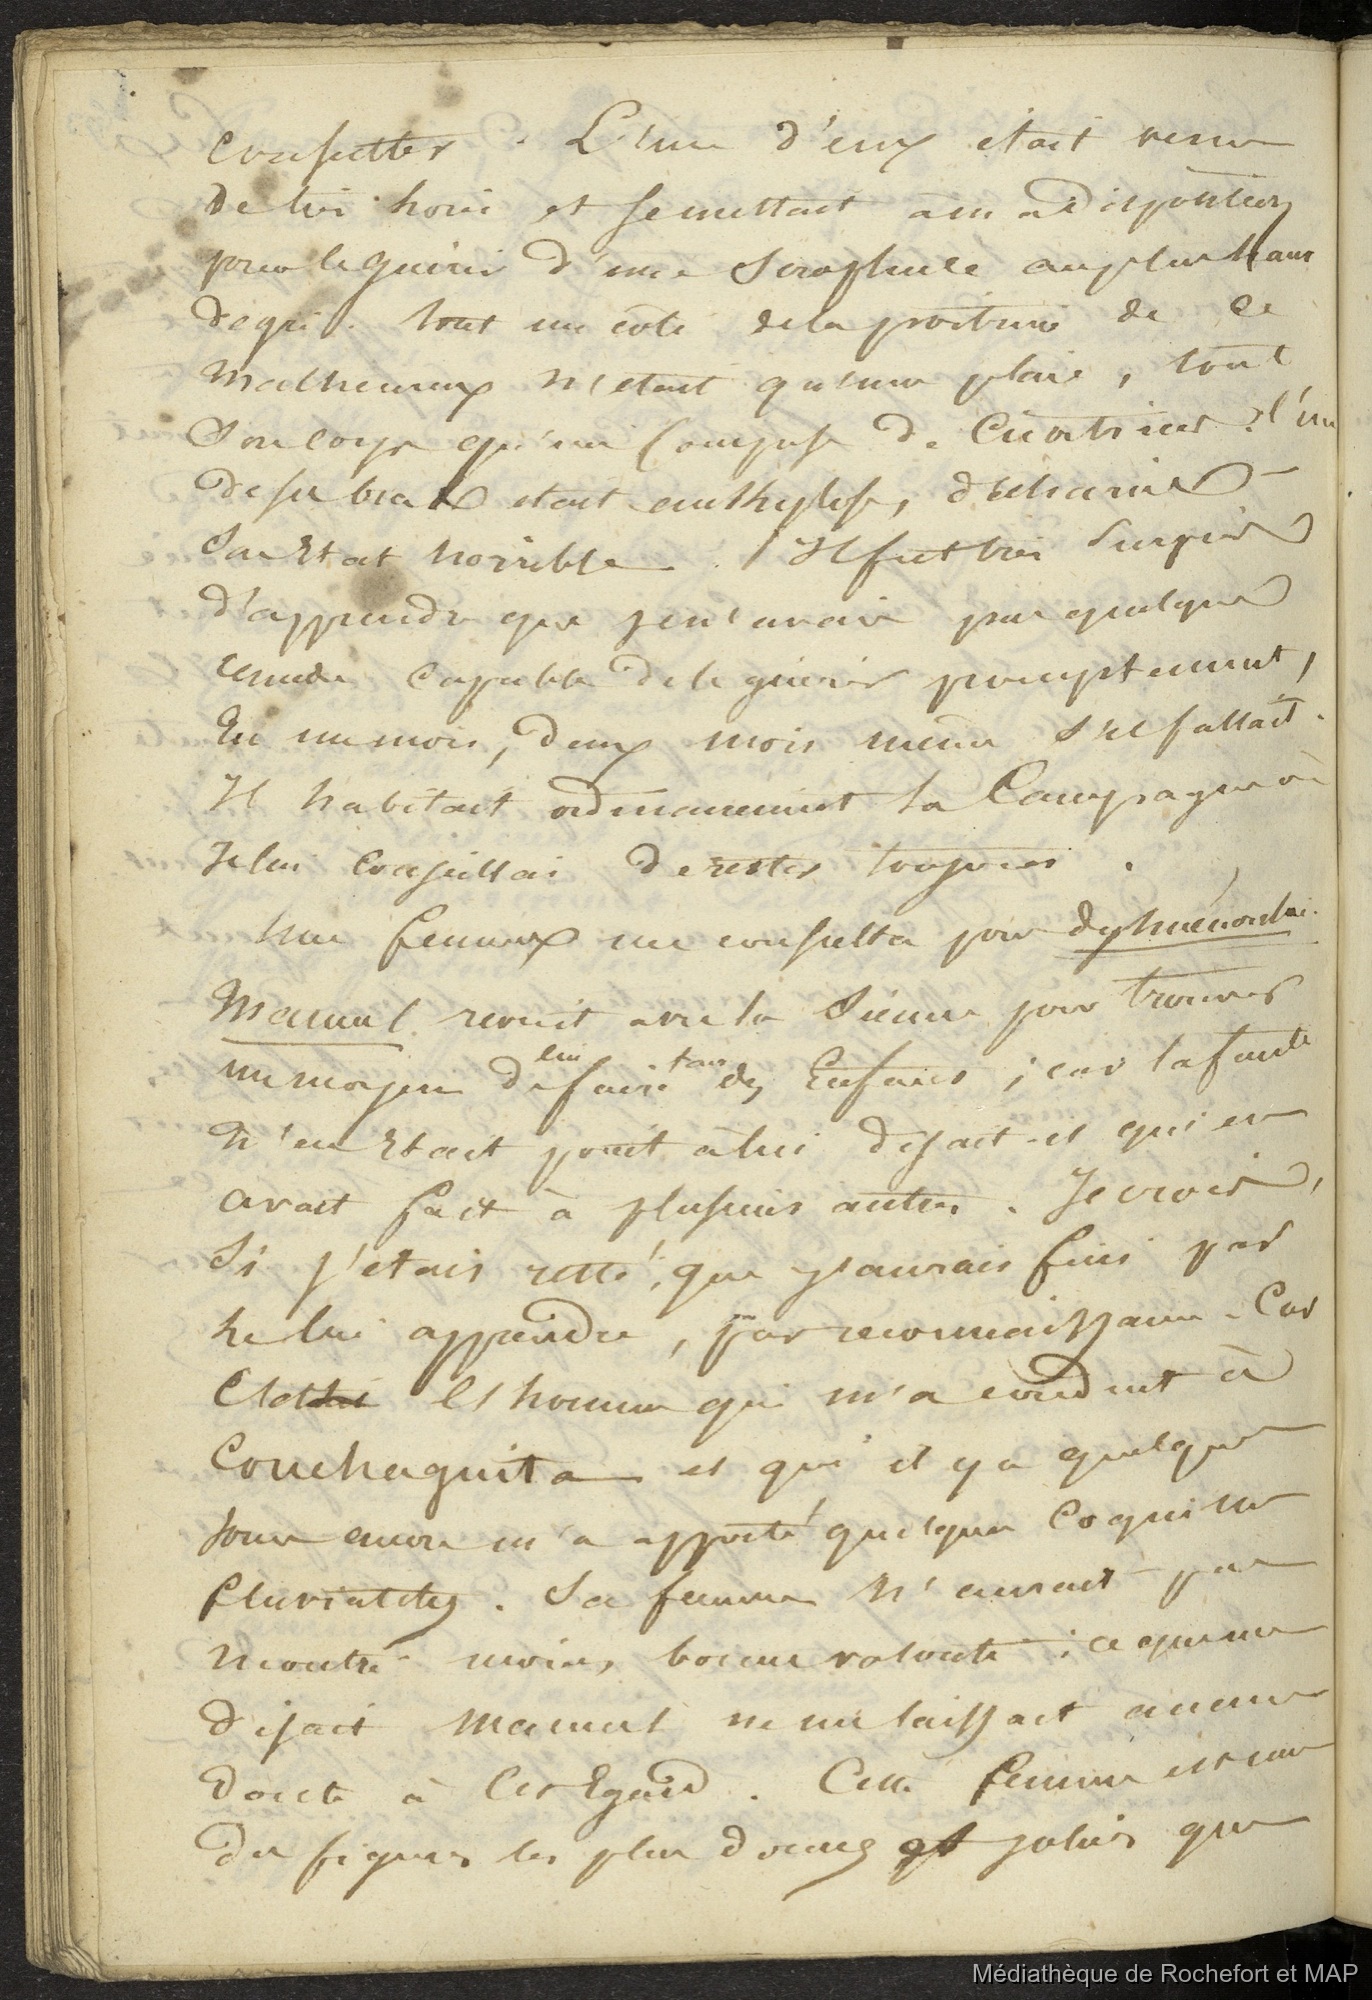 consulter. L'un d'eux était venu
de loin et se mettait à ma disposition
pour le guérir d'une Scrophule au plus haut
degré. tout un côté de la poitrine de ce
malheureux n'était qu'une plaie, tout
son corps qu'un composé de cicatrices. l'un
de ses bras était ankylosé, décharné
son état horrible. Il fut bien surpris
d'apprendre que je n'avais pas quelque
remède capable de le guérir promptement,
en un mois, deux mois même s'il fallait.
Il habitait ordinairement la Campagne où
je lui conseillai de rester toujours.
Une femme me consulta pour dysménorrhée.
Manuel revint avec la sienne pour trouver
un moyen de lui faire faire des Enfants ; car la faute
n'en était point à lui disait-il qui en
avait fait à plusieurs autres. Je crois,
si j'étais resté, que j'aurais fini par
le lui apprendre, par reconnaissance. Car
C'est l'homme qui m'a conduit à
Conchaguita et qui il y a quelques
jours encore m'a apporté quelques Coquilles
fluviatiles. Sa femme n'aurait pas
montré moins bonne volonté ; ce que me
disait Manuel ne me laissait aucun
doute à cet égard. Cette femme est une
des figures les plus douces et jolies que